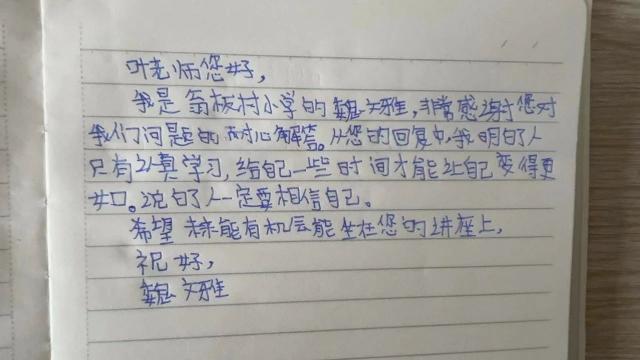 叶老师您好，
我是翁板村小学的魏文雅，非常感谢您对
我们问题的耐心解答。从您的回复中，我明白了人
只有认真学习，给自己一些时间才能让自己变得更
好。说白了人一定要相信自己。
希望未来能有机会能坐在您的讲座上，
祝好，
魏文雅